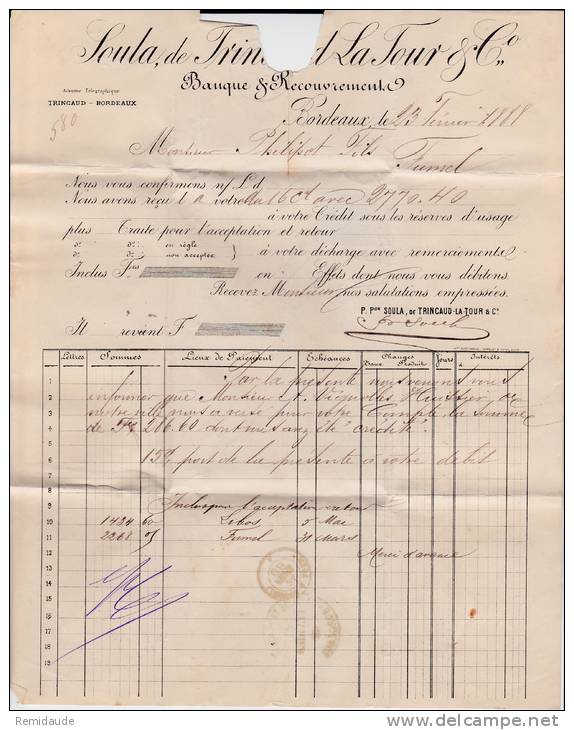 Soula, de Trincaud La Tour & Cie
Banque & Recouvrement
Adresse Télégraphique
TRINCAUD - BORDEAUX
580
Bordeaux, le 23 Février 1888
Monsieur Philipot Fils
Fumel
Nous vous confirmons n/ L. d
Nous avons reçu l a votre du 16 Ct avec 2770.40
à votre Crédit sous les réserves d'usage
plus Traite pour l'acceptation et retour
do. do. en règle
do. do. non acceptée
à votre décharge avec remerciements
Inclus Fcs en Effets dont nous vous débitons
Recevez Monsieur nos salutations empressées.
P. Pon SOULA, DE TRINCAUD-LA-TOUR & Cie
Il revient F
Lettres Sommes Lieux de Paiement Echéances Changes Jours Intérêts
Produits
1 Par la présente nous venons vous
2 informer que Monsieur Vignolles Huissier de
3 notre ville nous a versé pour votre Compte la somme
4 de Frs 286.60 dont vous avez été crédité.
5
6 15c port de la présente à votre débit
7
8
9 Inclus pour l'acceptation retour
10 1434 60 Libos 5 Mai
11 2268 05 Fumel 31 Mars
12 Merci d'avance
13
14
15
16
17
18
19
Remidaude
www.delcampe.net